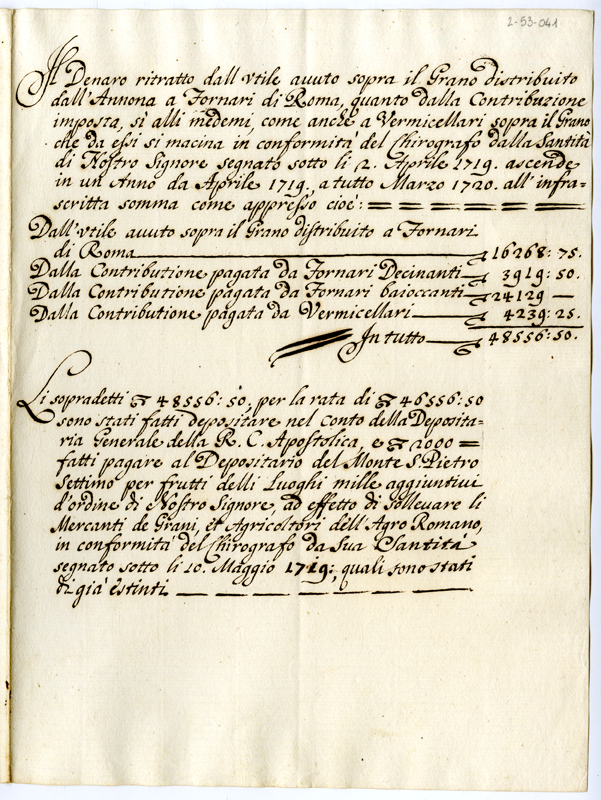 2-53-041
Il Denaro ritratto dall vtile avuto sopra il Grano distribuito
dall'Annona a Fornari di Roma, quanto dalla Contribuzione
imposta, sì alli medemi, come anche a Vermicellari sopra il Grano
che da essi si macina in conformità del Chirografo dalla Santità
di Nostro Signore segnato sotto li 2. Aprile 1719. ascende
in un Anno da Aprile 1719. a tutto Marzo 1720. all'infra=
scritta somma come appresso cioè: = = = = = =
Dall'vtile avuto sopra il Grano distribuito a Fornari
di Roma — 16268: 75.
Dalla Contributione pagata da Fornari Decinanti — 3919: 50.
Dalla Contributione pagata da Fornari baioccanti — 24129 —
Dalla Contributione pagata da Vermicellari — 4239: 25.
In tutto — 48556: 50.
Li sopradetti 48556: 50, per la rata di 46556: 50
sono stati fatti depositare nel conto della Deposita=
ria Generale della R. C. Apostolica, e 2000 =
fatti pagare al Depositario del Monte S. Pietro
Settimo per frutti delli Luoghi mille aggiuntivi
d'ordine di Nostro Signore, ad effetto di sollevare li
Mercanti de Grani, et Agricoltori dell'Agro Romano,
in conformità del Chirografo da Sua Santità
segnato sotto li 10. Maggio 1719:, quali sono stati
di già estinti — — — — — —